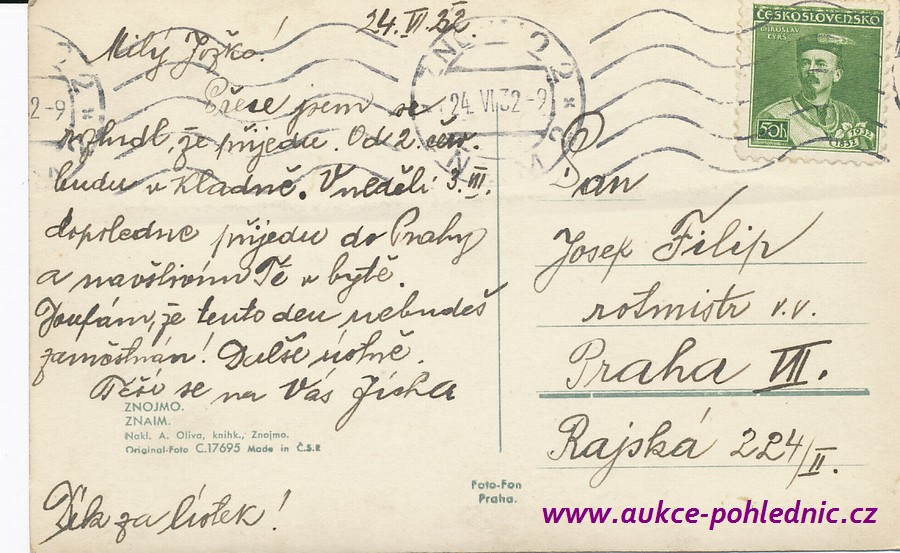 24. VI 32.
Milý Jožko!
Přece jsem se
rozhodl, že přijedu. Od 2. čer.
budu v Kladně. V neděli 3. VII.
dopoledne přijedu do Prahy
a navštívím Tě v bytě.
Doufám, že tento den nebudeš
zaměstnán! Dalše ústně.
Těší se na Vás Jirka
ZNOJMO.
ZNAIM.
Nakl. A. Oliva, knihk., Znojmo.
Original-Foto C.17695 Made in Č.S.R
Dík za lístek!
Foto-Fon
Praha.
ČESKOSLOVENSKO
MIROSLAV
TYRŠ
50h
1832
1932
ZNOJMO 2
24. VI 32-9
32-9
Pan
Josef Filip
rotmistr v.v.
Praha VII.
Rajská 224/II.
www.aukce-pohlednic.cz